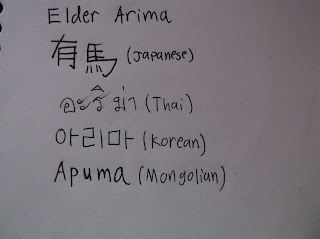 Elder Arima
有馬 (Japanese)
อะริม่า (Thai)
아리마 (Korean)
Арита (Mongolian)